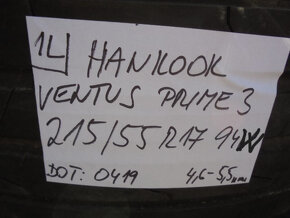 14 HANKOOK
VENTUS PRIME 3
215/55 R17 94W
DOT: 0419 4,6-5,5mm